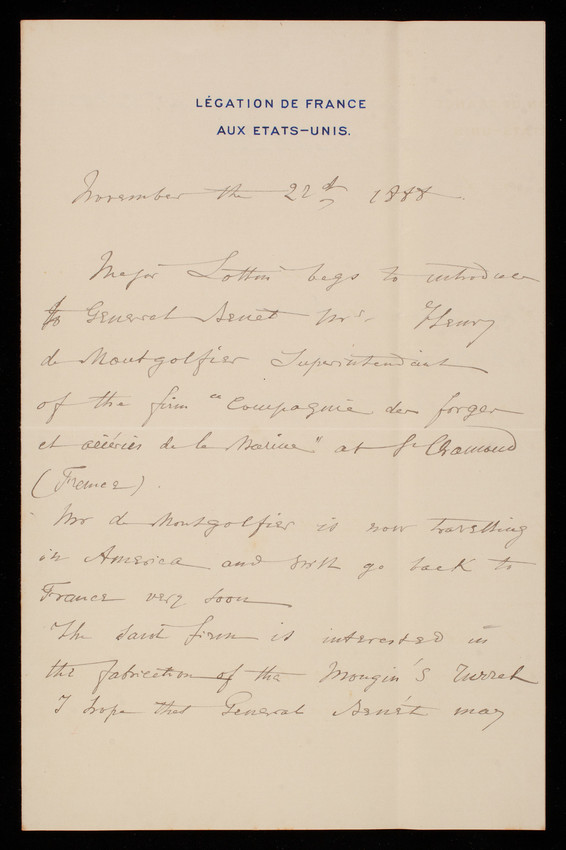 LÉGATION DE FRANCE
AUX ETATS-UNIS.
November the 22d 1888
Major Lottin begs to introduce
to General Benét Mr. Henry
de Montgolfier Superintendant
of the firm "Compagnie des forges
et aciéries de la Marine" at St Chamond
(France).
Mr de Montgolfier is now travelling
in America and will go back to
France very soon
The said firm is interested in
the fabrication of the Mougin's Turret
I hope that General Benét may